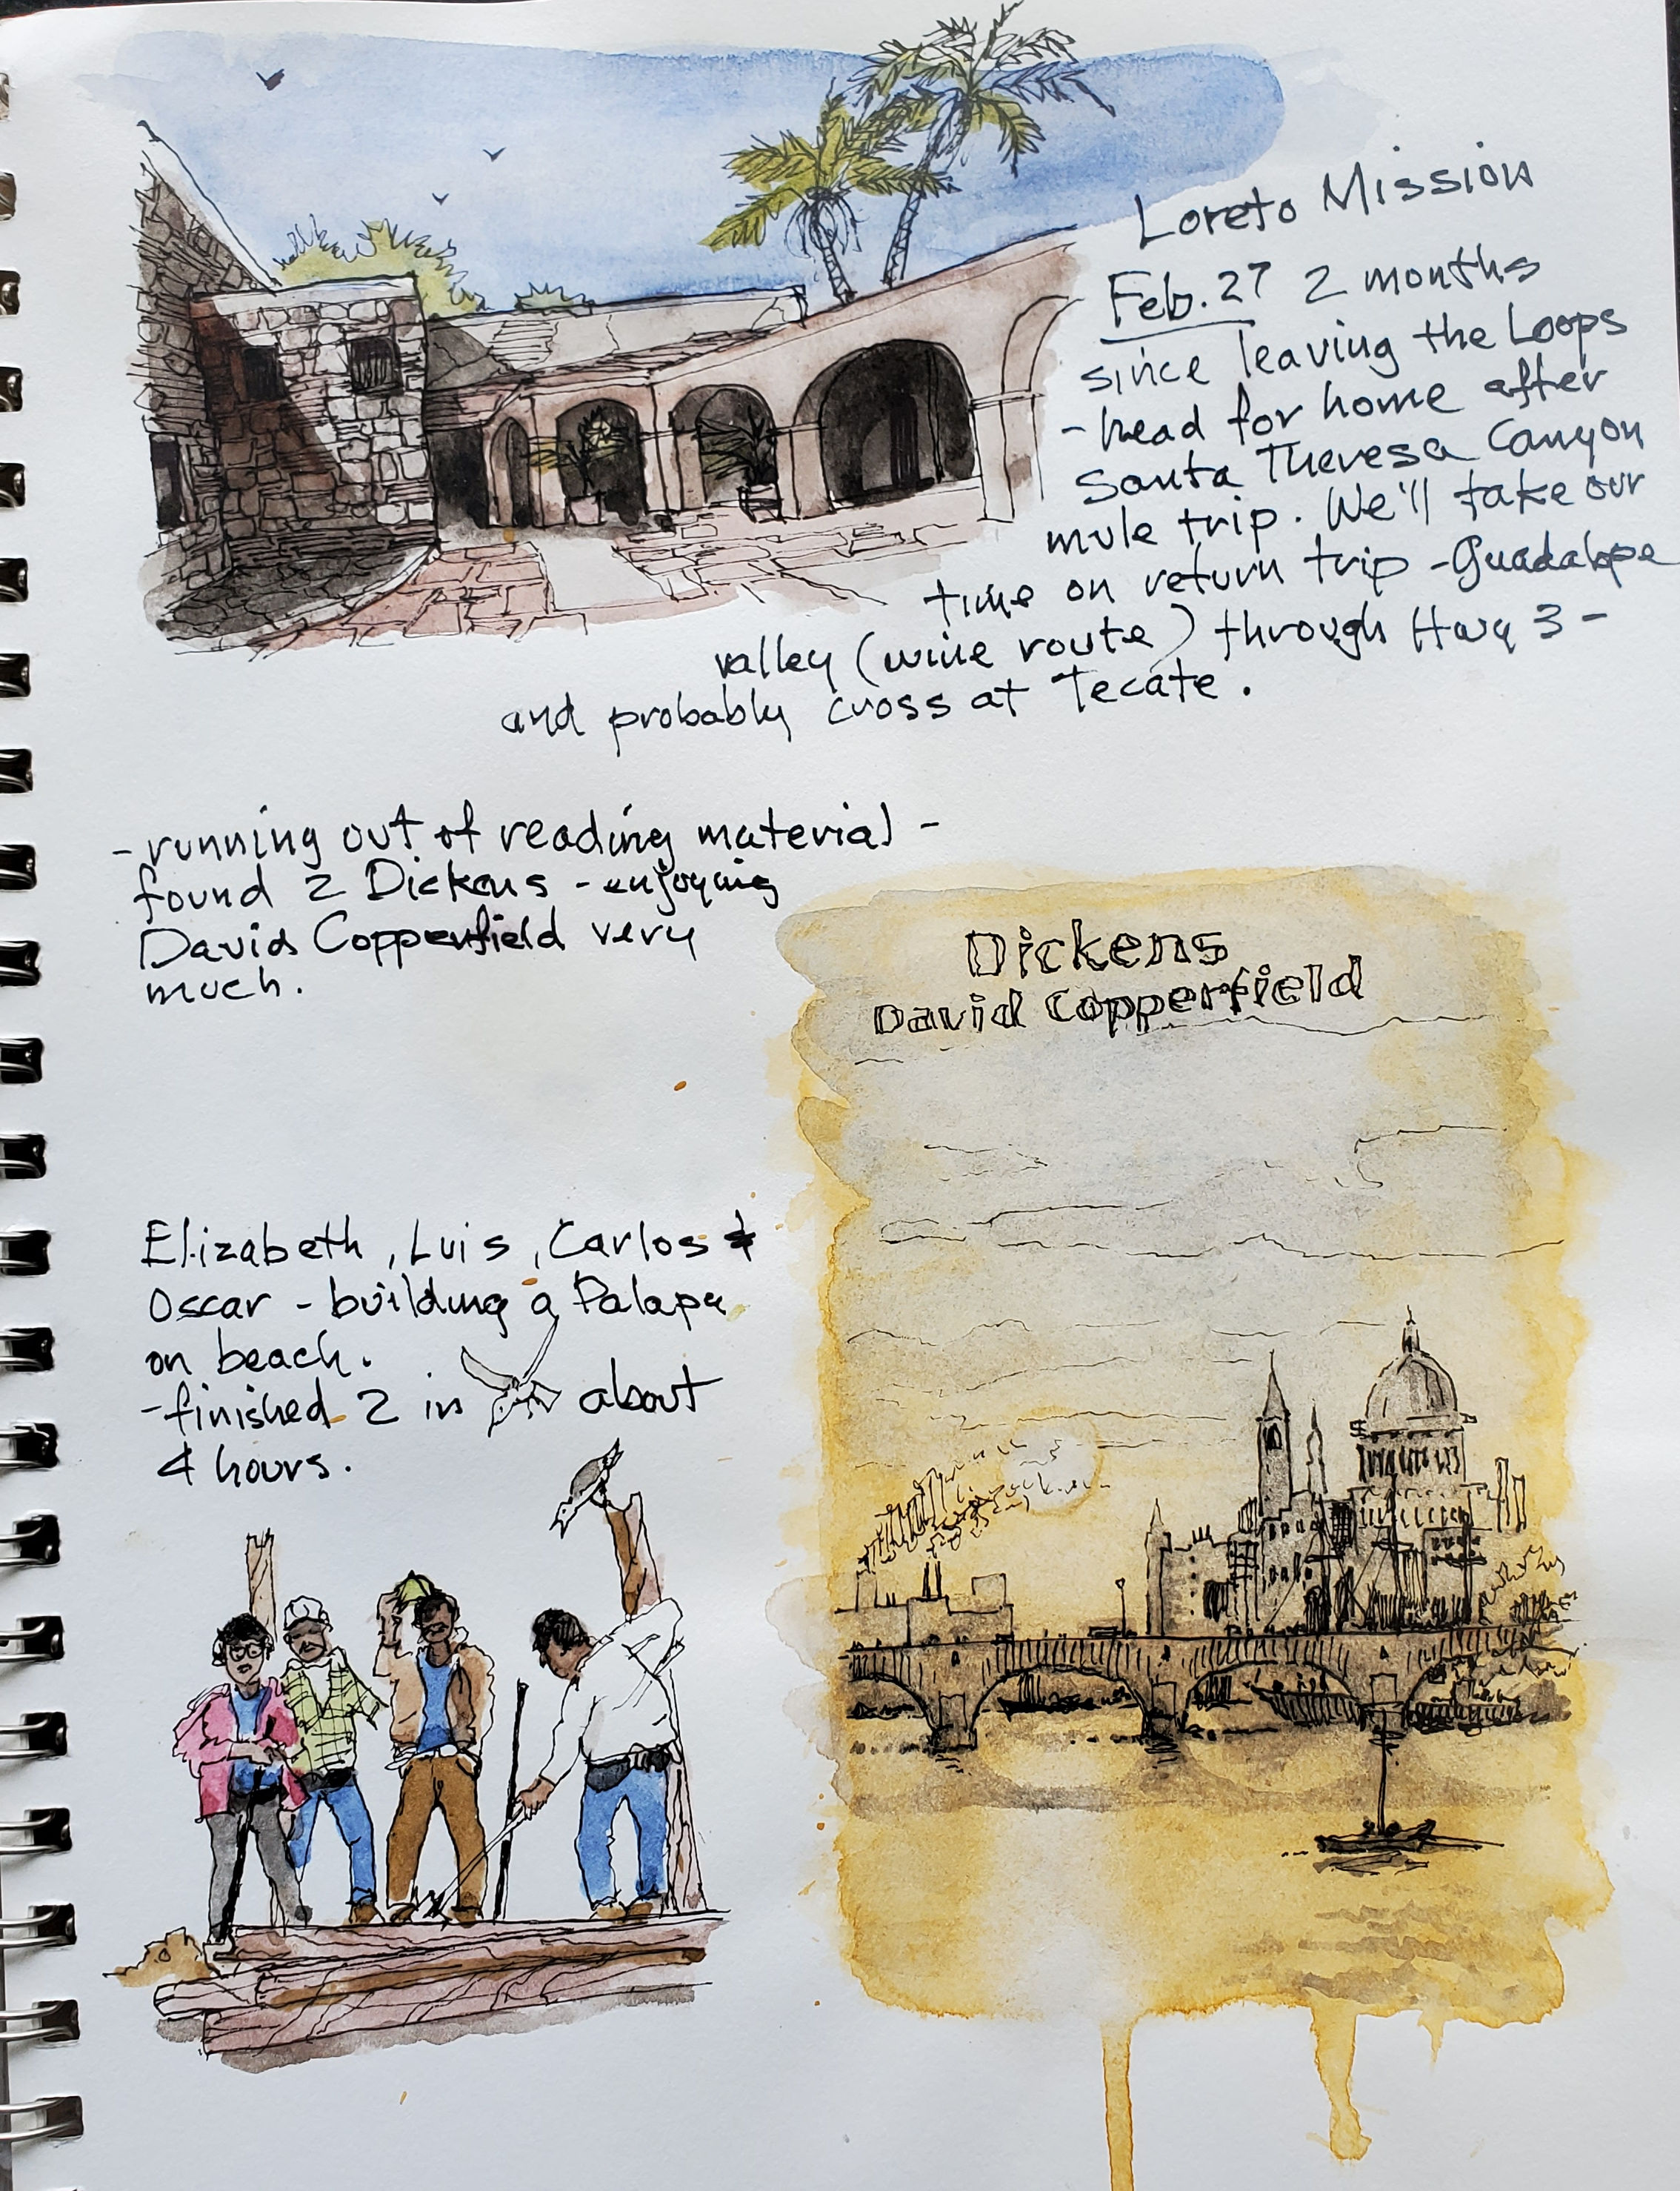 Loreto Mission
Feb. 27 2 months
since leaving the Loops
- head for home after
Santa Theresa Canyon
mule trip. We'll take our
time on return trip - Guadalupe
valley (wine route) through Hwy 3 -
and probably cross at Tecate.
- running out of reading material -
found 2 Dickens - enjoying
David Copperfield very
much.
Dickens
David Copperfield
Elizabeth, Luis, Carlos &
Oscar - building a Palapa
on beach.
- finished 2 in about
4 hours.